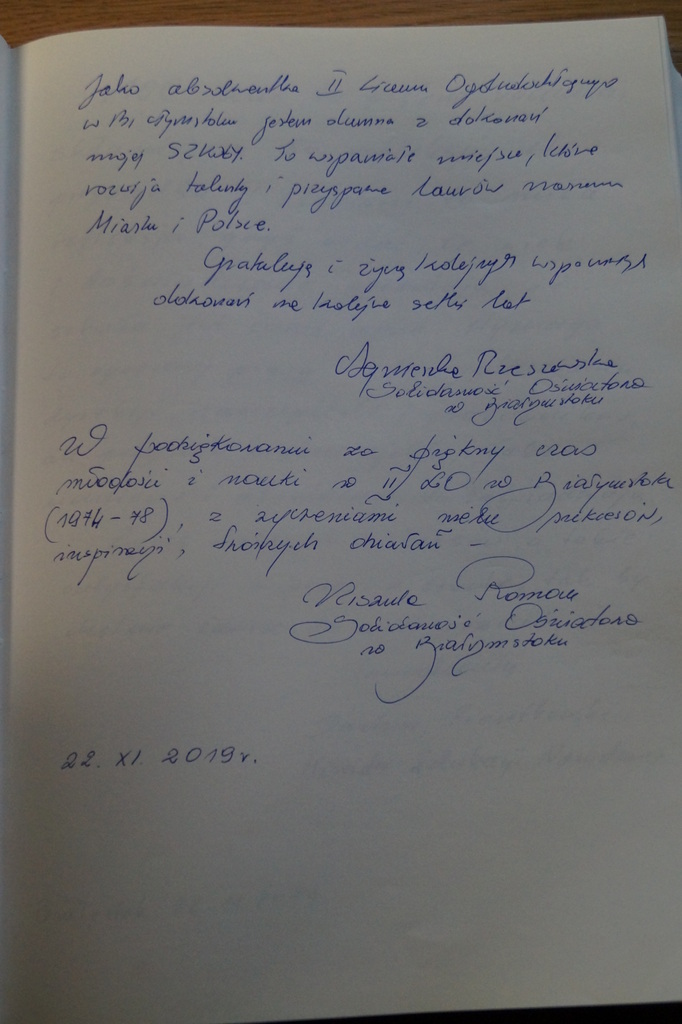 Jako absolwentka II Liceum Ogólnokształcącego
w Białymstoku jestem dumna z dokonań
mojej SZKOŁY. To wspaniałe miejsce, które
rozwija talenty i przysparza laurów naszemu
Miastu i Polsce.
Gratuluję i życzę kolejnych wspaniałych
dokonań na kolejne setki lat
Agnieszka Rzeszewska
Solidarność Oświatowa
w Białymstoku
W podziękowaniu za piękny czas
młodości i nauki w II LO w Białymstoku
(1974-78), z życzeniami wielu sukcesów,
inspiracji, działań -
Roman
Solidarność Oświatowa
w Białymstoku
22. XI. 2019 r.